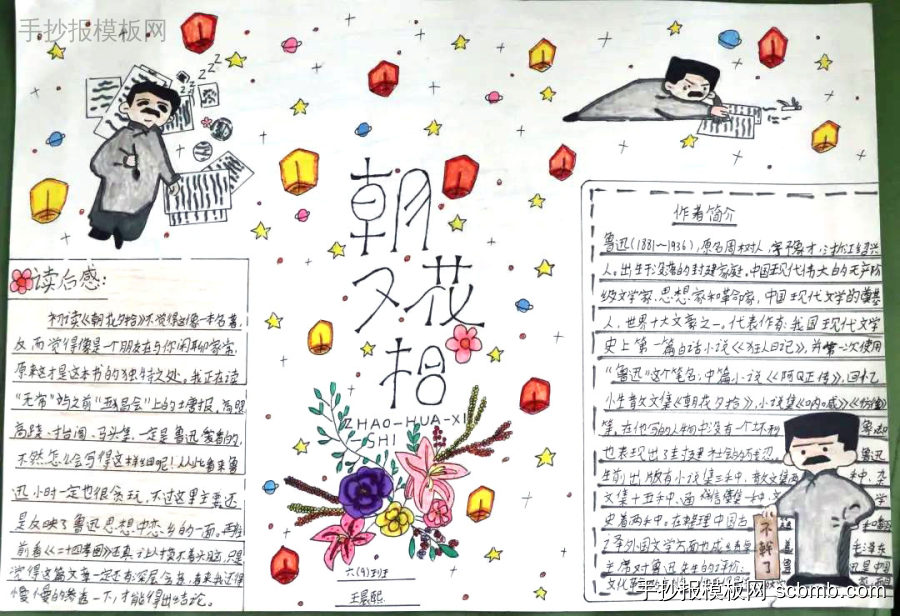 手抄报模板网
朝
夕花
拾
ZHAO-HUA-XI
-SHI
读后感:
初读《朝花夕拾》不觉得它像一本名著,
反而觉得像是一个朋友在与你闲聊家常,
原来这才是这本书的独特之处。我正在读
"无常"与之前"五猖会"上的
高跷、抬阁、马头集,一定是鲁迅爱看的,
不然怎么会写得这样细呢!从从此看来鲁
迅小时一定也很贪玩,不过这里主要还
是反映了鲁迅思想中恋乡的一面。再往
前看《二十四孝图》还真让人摸不着头脑,只是
觉得这篇文章一定还有深层含意,看来我还得
慢慢的参透一下,才能得出结论。
六(9)班
王晨熙
作者简介
鲁迅(1881~1936),原名周树人,字豫才,浙江绍兴
人。出生于没落的封建家庭。中国现代伟大的无产阶
级文学家、思想家和革命家,中国现代文学的奠基
人,世界十大文豪之一。代表作有:我国现代文学
史上第一篇白话小说《狂人日记》,并第一次使用
"鲁迅"这个笔名;中篇小说《阿Q正传》,回忆
性散文集《朝花夕拾》,小说集《呐喊》《彷徨》
等。在他写的人物中没有一个坏
也表现出了封建社会的 鲁迅
生前出版有小说集三种,散文集两 种,杂
文集十五种,通信书信集一种,文 学
史著两种。在整理中国古
泽外国文学方面也成
主席对鲁迅先生的评价:
文化
不干了
手抄报模板网 scbmb.com